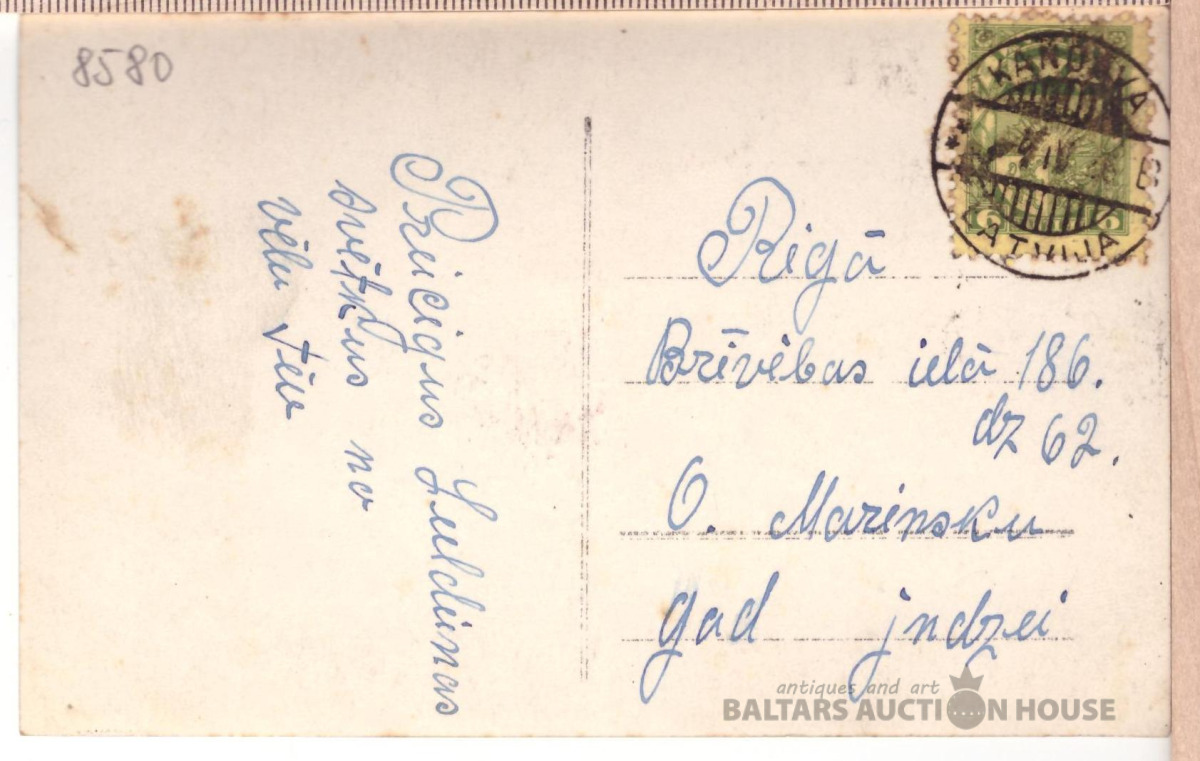 8580
Priecigus
svētkus no
vēlu Tēv
KANDAVA
IV
B
LATVIJA
6 6
Rigā
Brīvības ielā 186.
dz 62.
O. Marinsku
gad jndzei
antiques and art
BALTARS AUCTION HOUSE